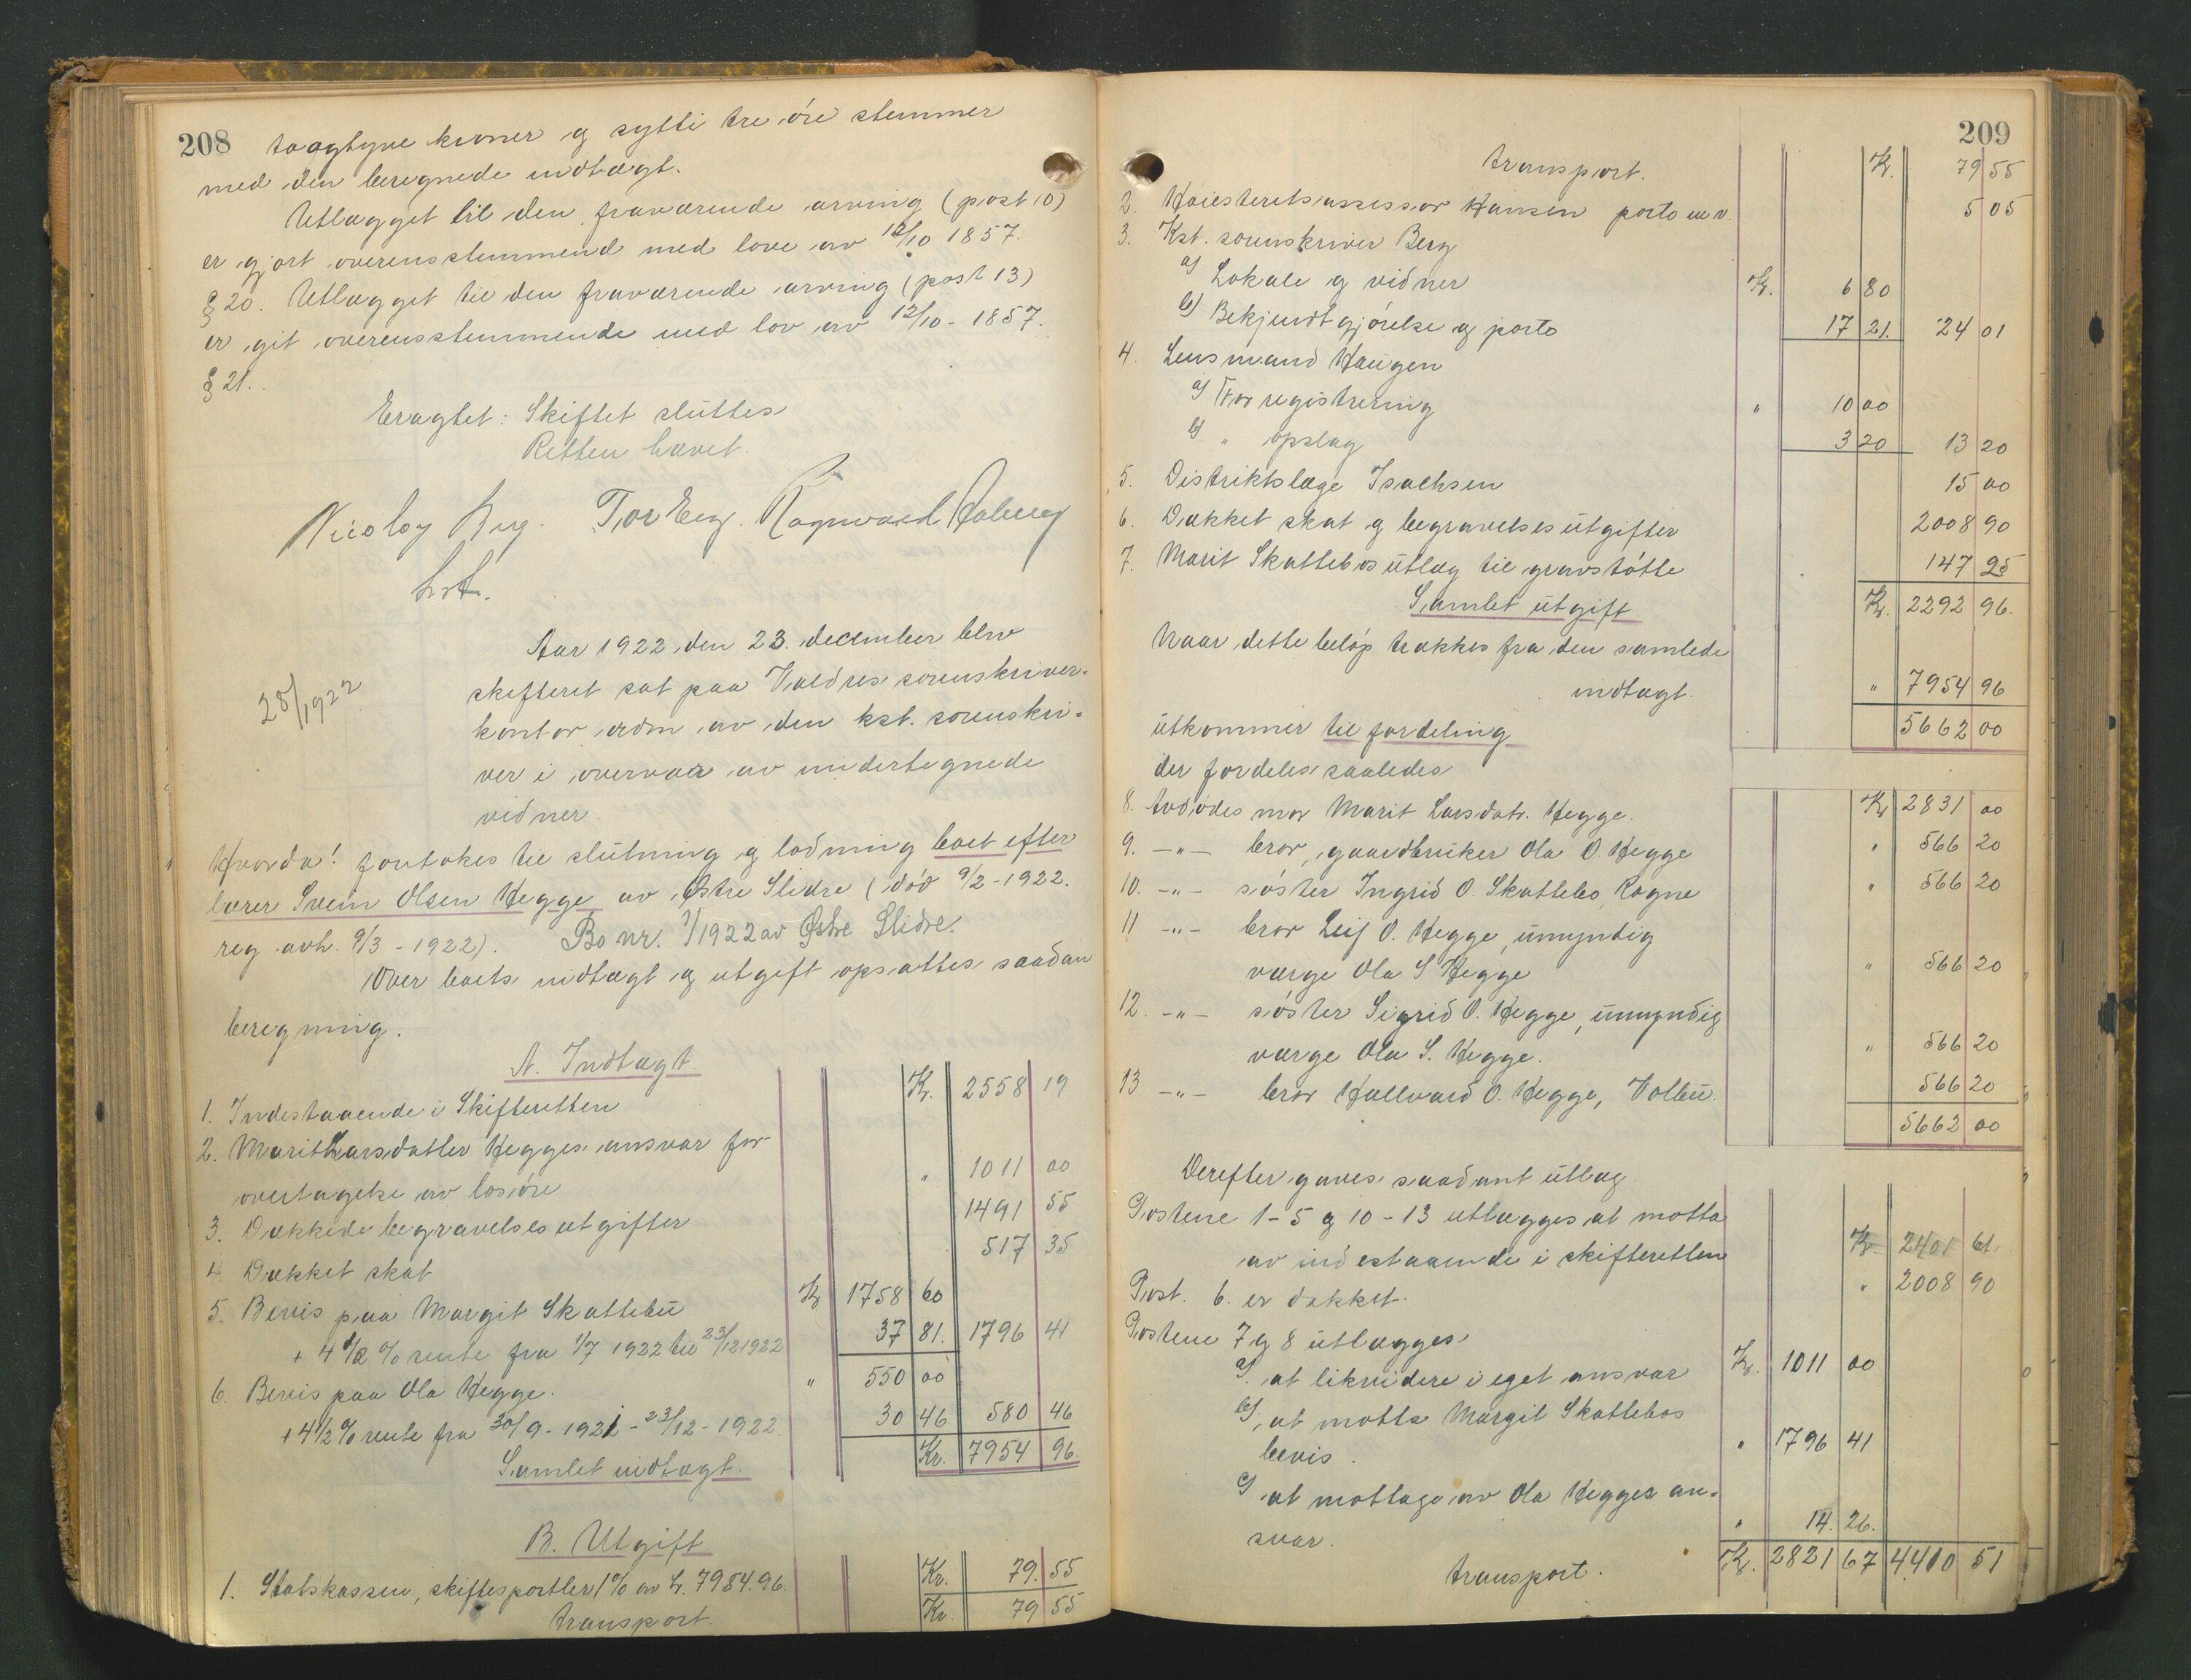 208
toogtyve kroner og sytti tre øre stemmer
med den beregnede indtægt.
Utlægget til den fraværende arving (post 10)
er gjort overensstemmend med love av 12/10 1857.
§ 20. Utlægget til den fraværende arving (post 13)
er git overensstemmende med lov av 12/10 - 1857.
§ 21.
Eragtet: Skiftet sluttes
Retten hævet.
Nicolay Berg. Tor Berg. Ragnvald
kst.
28/1922
Aar 1922 den 23. december blev
skifteret sat paa Valdres sorenskriver-
kontor adm av den kst. sorenskri-
ver i overvær av undertegnede
vidner.
Hvorda! foretokes til slutning og lodning boet efter
lærer Svein Olsen Hegge av Østre Slidre (død 9/2 - 1922.
reg avh. 9/3 - 1922). Bo nr. 1/1922 av Østre Slidre.
Over boets indtægt og utgift opsattes saadan
beregning.
A. Indtægt
1. Indestaaende i Skifteretten Kr. 2558 19
2. Marit Larsdatter Hegges ansvar for
overtagelse av løsøre " 1011 00
3. Dækkede begravelsesutgifter 1491 55
4. Dækket skat 517 35
5. Bevis paa Margit Skattebu Kr 1758 60
+ 4 1/2 % rente fra 1/7 1922 til 23/12 1922 37 81. 1796 41
6. Bevis paa Ola Hegge. " 550 00
+ 4 1/2 % rente fra 30/9 - 1921 - 23/12 - 1922 30 46 580 46
Samlet indtægt. Kr. 7954 96.
B. Utgift
1. Statskassen, skiftesportler 1 % av kr. 7954.96. Kr. 79. 55
transport. Kr. 79 55
209
transport. Kr. 79 55
2. Høiesteretsassessor Hansen porto m v. 5 05
3. Kst. sorenskriver Berg
a) Lokale og vidner Kr. 6 80
b) Bekjendtgjørelse og porto 17 21. 24 01
4. Lensmand Haugen
a) For registrering " 10 00
b) " opslag 3 20 13 20
5. Distriktslæge Isachsen 15 00
6. Dækket skat og begravelsesutgifter 2008 90
7. Marit Skattebos utlæg til gravstøtte 147 25
Samlet utgift Kr. 2292 96.
Naar dette beløp trækkes fra den samlede
indtægt. " 7954 96
utkommer til fordeling 5662 00
der fordeles saaledes
8. Avdødes mor Marit Larsdatr. Hegge. Kr 2831 00
9. -"- bror, gaardbruker Ola O. Hegge " 566 20
10. -"- søster Ingrid O. Skattebo, Rogne " 566 20
11 -"- bror Leif O. Hegge, umyndig
værge Ola S Hegge " 566 20
12. -"- søster Sigrid O. Hegge, umyndig
værge Ola S. Hegge. " 566 20
13 -"- bror Hallvard O. Hegge, Volbu. 566 20
5662 00
Derefter gaves saadant utlæg
Postene 1 - 5 og 10 - 13 utlægges at motta
av indestaaende i skifteretten Kr. 2401 61.
Post. 6. er dækket. " 2008 90
Postene 7 og 8 utlægges
a) at likvidere i eget ansvar Kr. 1011 00
b) at motta Margit Skattebos
bevis. " 1796 41
c) at mottage av Ola Hegges an-
svar. " 14. 26.
transport. Kr. 2821 67 4410 51